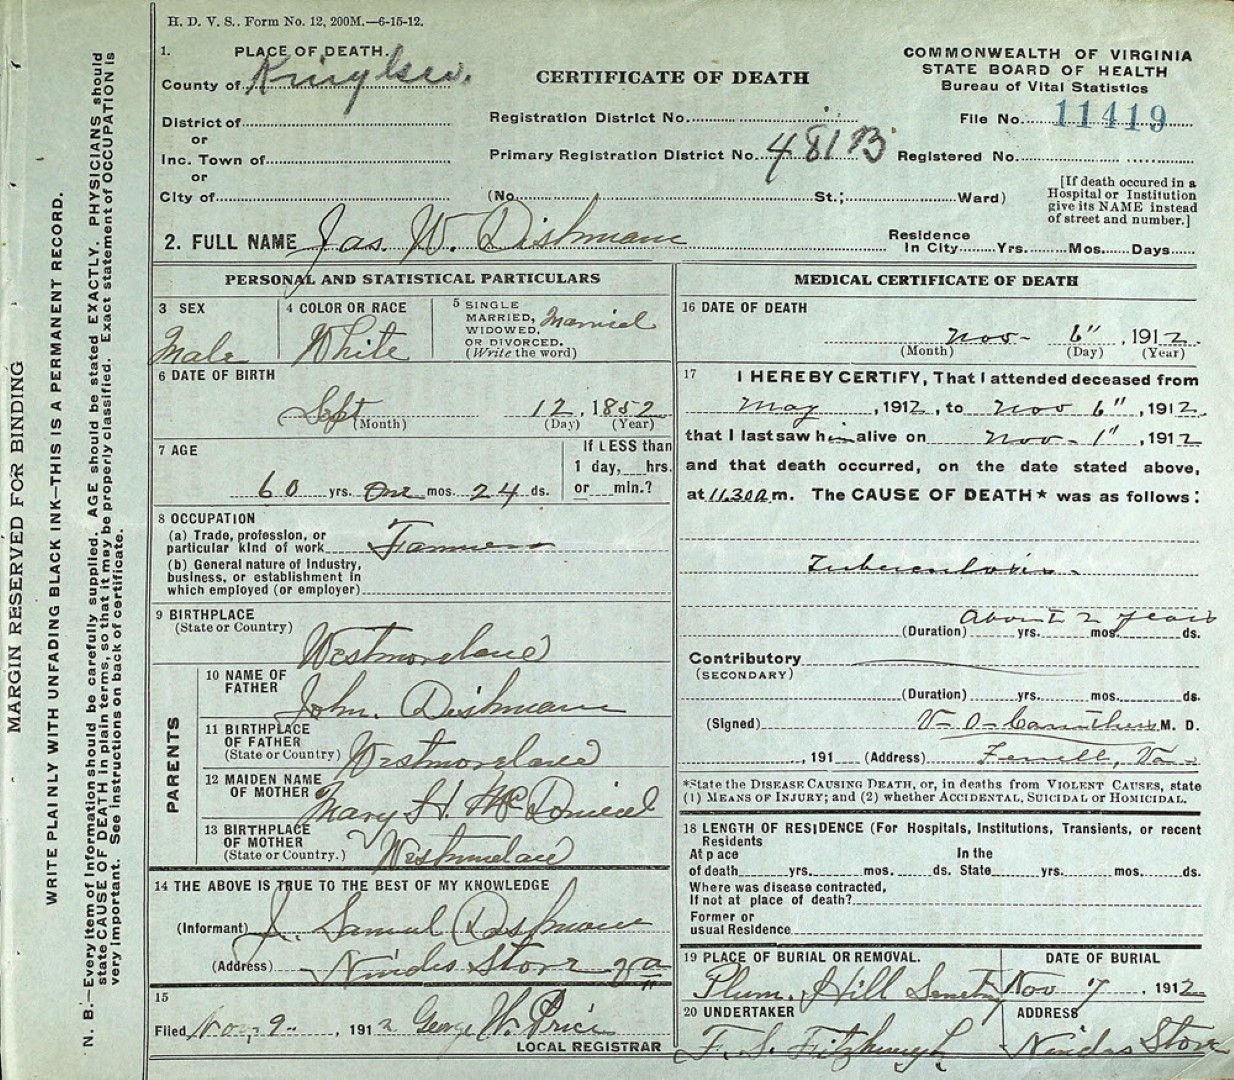 H. D. V. S.. Form No. 12, 200M.—6-15-12.
1. PLACE OF DEATH.
County of
District of
or
Inc. Town of
or
City of
CERTIFICATE OF DEATH
Registration District No.
Primary Registration District No. 481B
(No. St.; Ward)
COMMONWEALTH OF VIRGINIA
STATE BOARD OF HEALTH
Bureau of Vital Statistics
File No. 11419
Registered No.
[If death occured in a
Hospital or Institution
give its NAME instead
of street and number.]
2. FULL NAME Jas. W. Dishman
Residence
In City Yrs. Mos. Days
PERSONAL AND STATISTICAL PARTICULARS
3 SEX
Male
4 COLOR OR RACE
White
5 SINGLE
MARRIED, Married
WIDOWED,
OR DIVORCED.
(Write the word)
6 DATE OF BIRTH
Sept 12, 1852
(Month) (Day) (Year)
7 AGE
60 yrs. One mos. 24 ds.
If LESS than
1 day, hrs.
or min.?
8 OCCUPATION
(a) Trade, profession, or
particular kind of work Farmer
(b) General nature of Industry,
business, or establishment in
which employed (or employer)
9 BIRTHPLACE
(State or Country)
Westmoreland
PARENTS
10 NAME OF
FATHER
John. Dishman
11 BIRTHPLACE
OF FATHER
(State or Country) Westmoreland
12 MAIDEN NAME
OF MOTHER Mary H. McDaniel
13 BIRTHPLACE
OF MOTHER
(State or Country.) Westmoreland
14 THE ABOVE IS TRUE TO THE BEST OF MY KNOWLEDGE
(Informant) J. Samuel Dishman
(Address) Nindes Store Va
15
Filed Nov, 9 , 1912 George W. Price
LOCAL REGISTRAR
MEDICAL CERTIFICATE OF DEATH
16 DATE OF DEATH
Nov- 6", 1912
(Month) (Day) (Year)
17 I HEREBY CERTIFY, That I attended deceased from
May , 1912, to Nov 6", 1912.
that I last saw him alive on Nov- 1", 1912
and that death occurred, on the date stated above,
at 11.30a m. The CAUSE OF DEATH* was as follows:
Tuberculosis
About 2 years
(Duration) yrs. mos. ds.
Contributory
(SECONDARY)
(Duration) yrs. mos. ds.
(Signed) M. D.
, 191 (Address) Va
*State the DISEASE CAUSING DEATH, or, in deaths from VIOLENT CAUSES, state
(1) MEANS OF INJURY; and (2) whether ACCIDENTAL, SUICIDAL or HOMICIDAL.
18 LENGTH OF RESIDENCE (For Hospitals, Institutions, Transients, or recent
Residents
At place In the
of death yrs. mos. ds. State yrs. mos. ds.
Where was disease contracted,
If not at place of death?
Former or
usual Residence
19 PLACE OF BURIAL OR REMOVAL. DATE OF BURIAL
Plum. Hill Nov 7 , 1912
20 UNDERTAKER ADDRESS
F. S. Fitzhugh Nindes Store
MARGIN RESERVED FOR BINDING
WRITE PLAINLY WITH UNFADING BLACK INK—THIS IS A PERMANENT RECORD.
N. B.—Every item of Information should be carefully supplied. AGE should be stated EXACTLY. PHYSICIANS should
state CAUSE OF DEATH in plain terms, so that it may be properly classified. Exact statement of OCCUPATION is
very important. See Instructions on back of certificate.